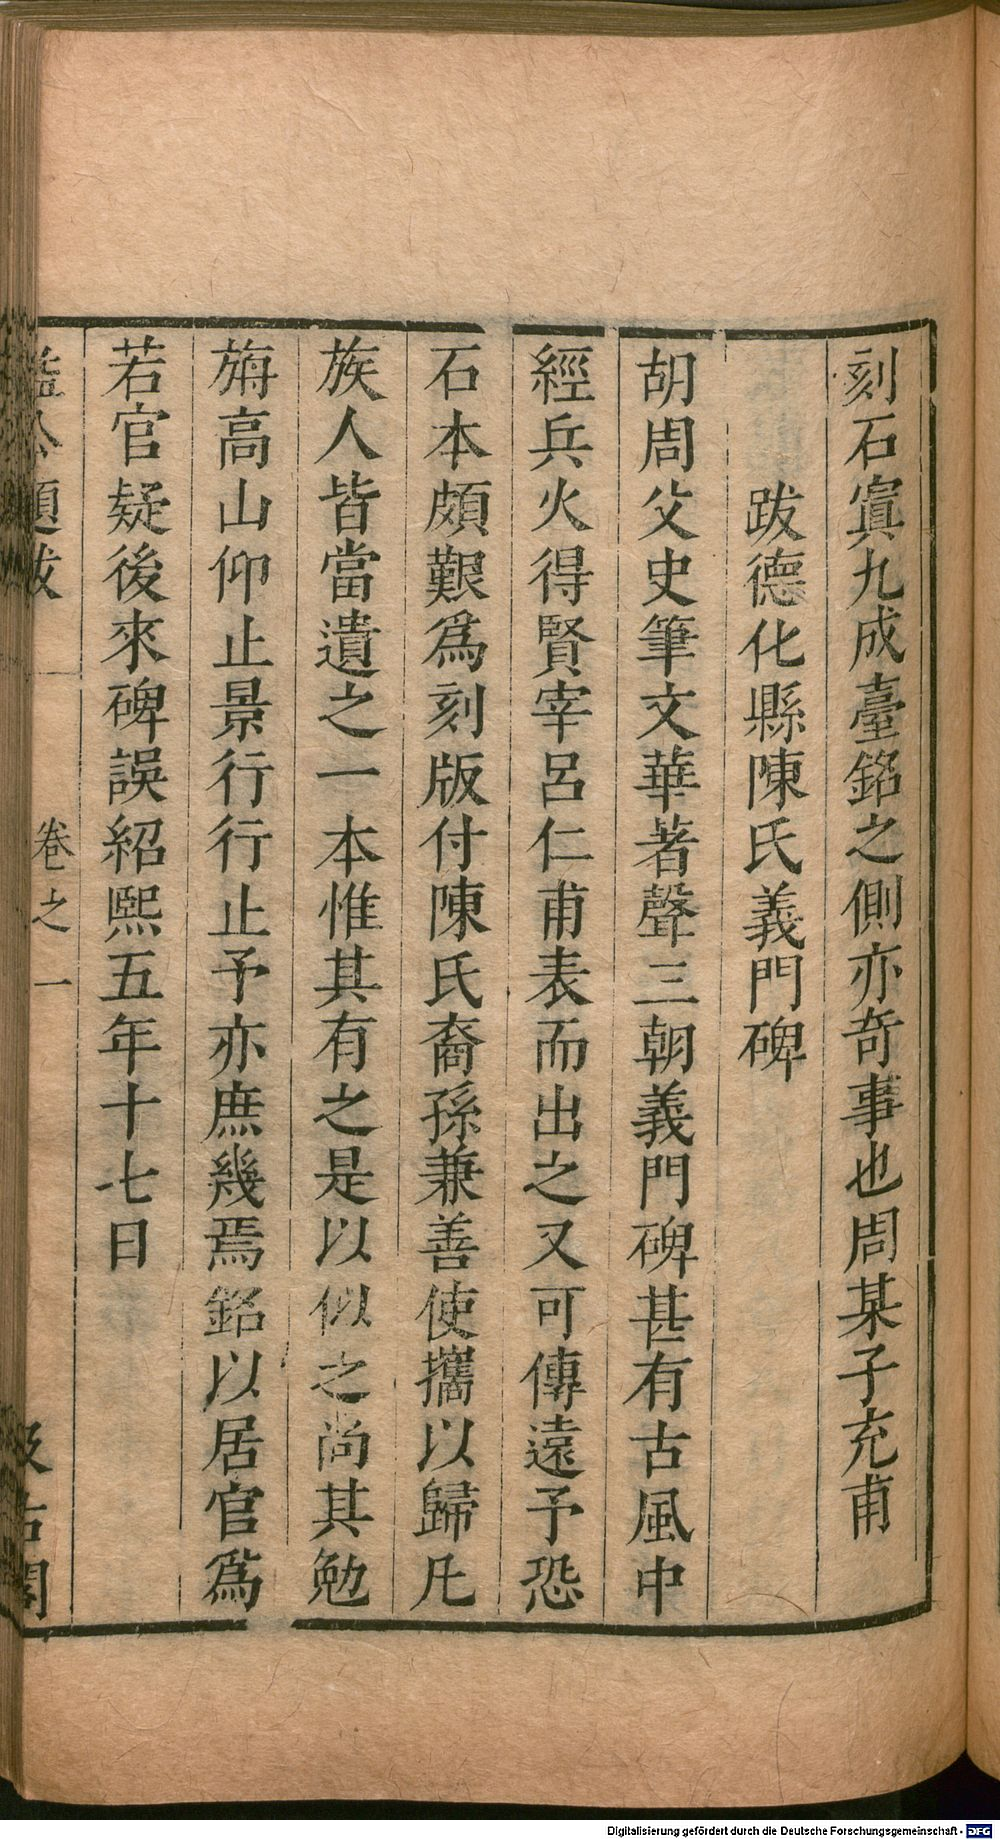 刻石寘九成臺銘之側亦奇事也周某子充甫
跋德化縣陳氏義門碑
胡周父史筆文華著聲三朝義門碑甚有古風中
經兵火得賢宰呂仁甫表而出之又可傳遠予恐
石本頗艱爲刻版付陳氏裔孫兼善使攜以歸凡
族人皆當遺之一本惟其有之是以似之尚其勉
旃高山仰止景行行止予亦庶幾焉銘以居官爲
若官疑後來碑誤紹熙五年十七日
益公題跋 卷之一 汲古閣
Digitalisierung gefördert durch die Deutsche Forschungsgemeinschaft - DFG